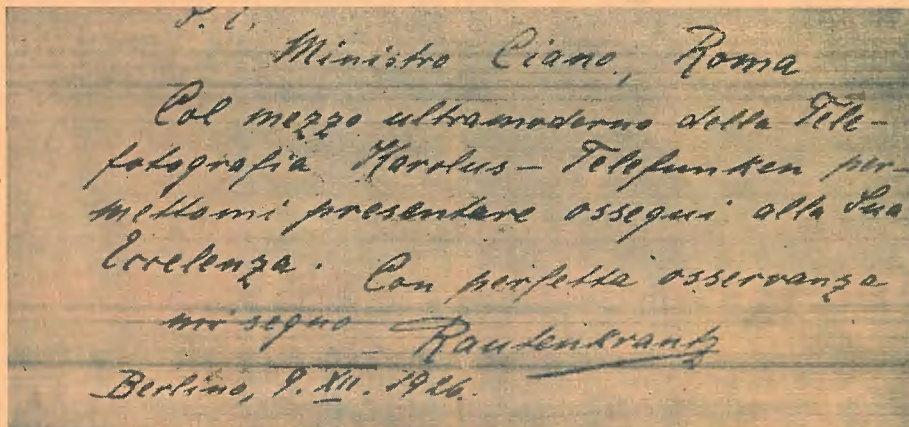 S. E.
Ministro Ciano, Roma
Col mezzo ultramoderno della Tele-
fotografia Karolus - Telefunken per-
mettomi presentare ossequi alla Sua
Eccelenza. Con perfetta osservanza
mi segno Rautenkrantz
Berlino, 9. XII. 1926.